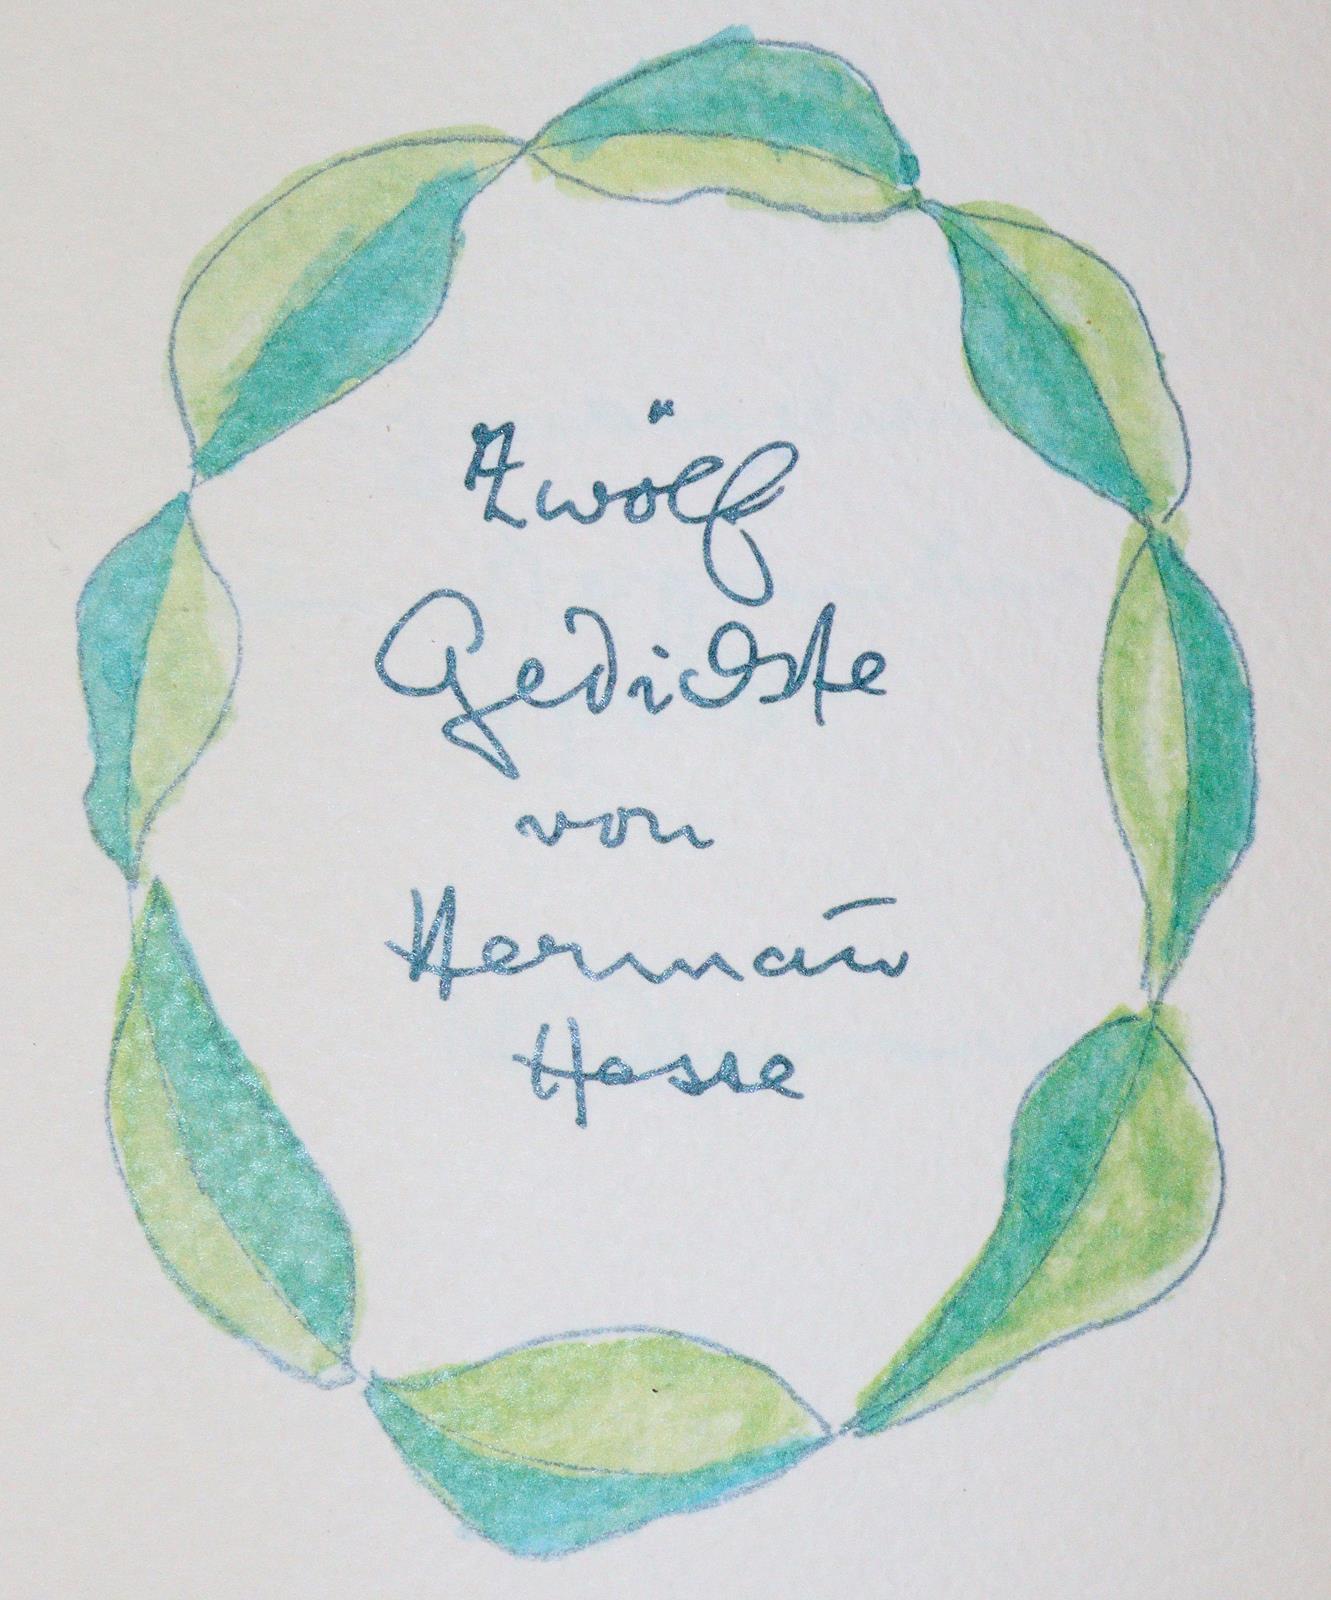 Zwölf
Gedichte
von
Herman̄
Hesse